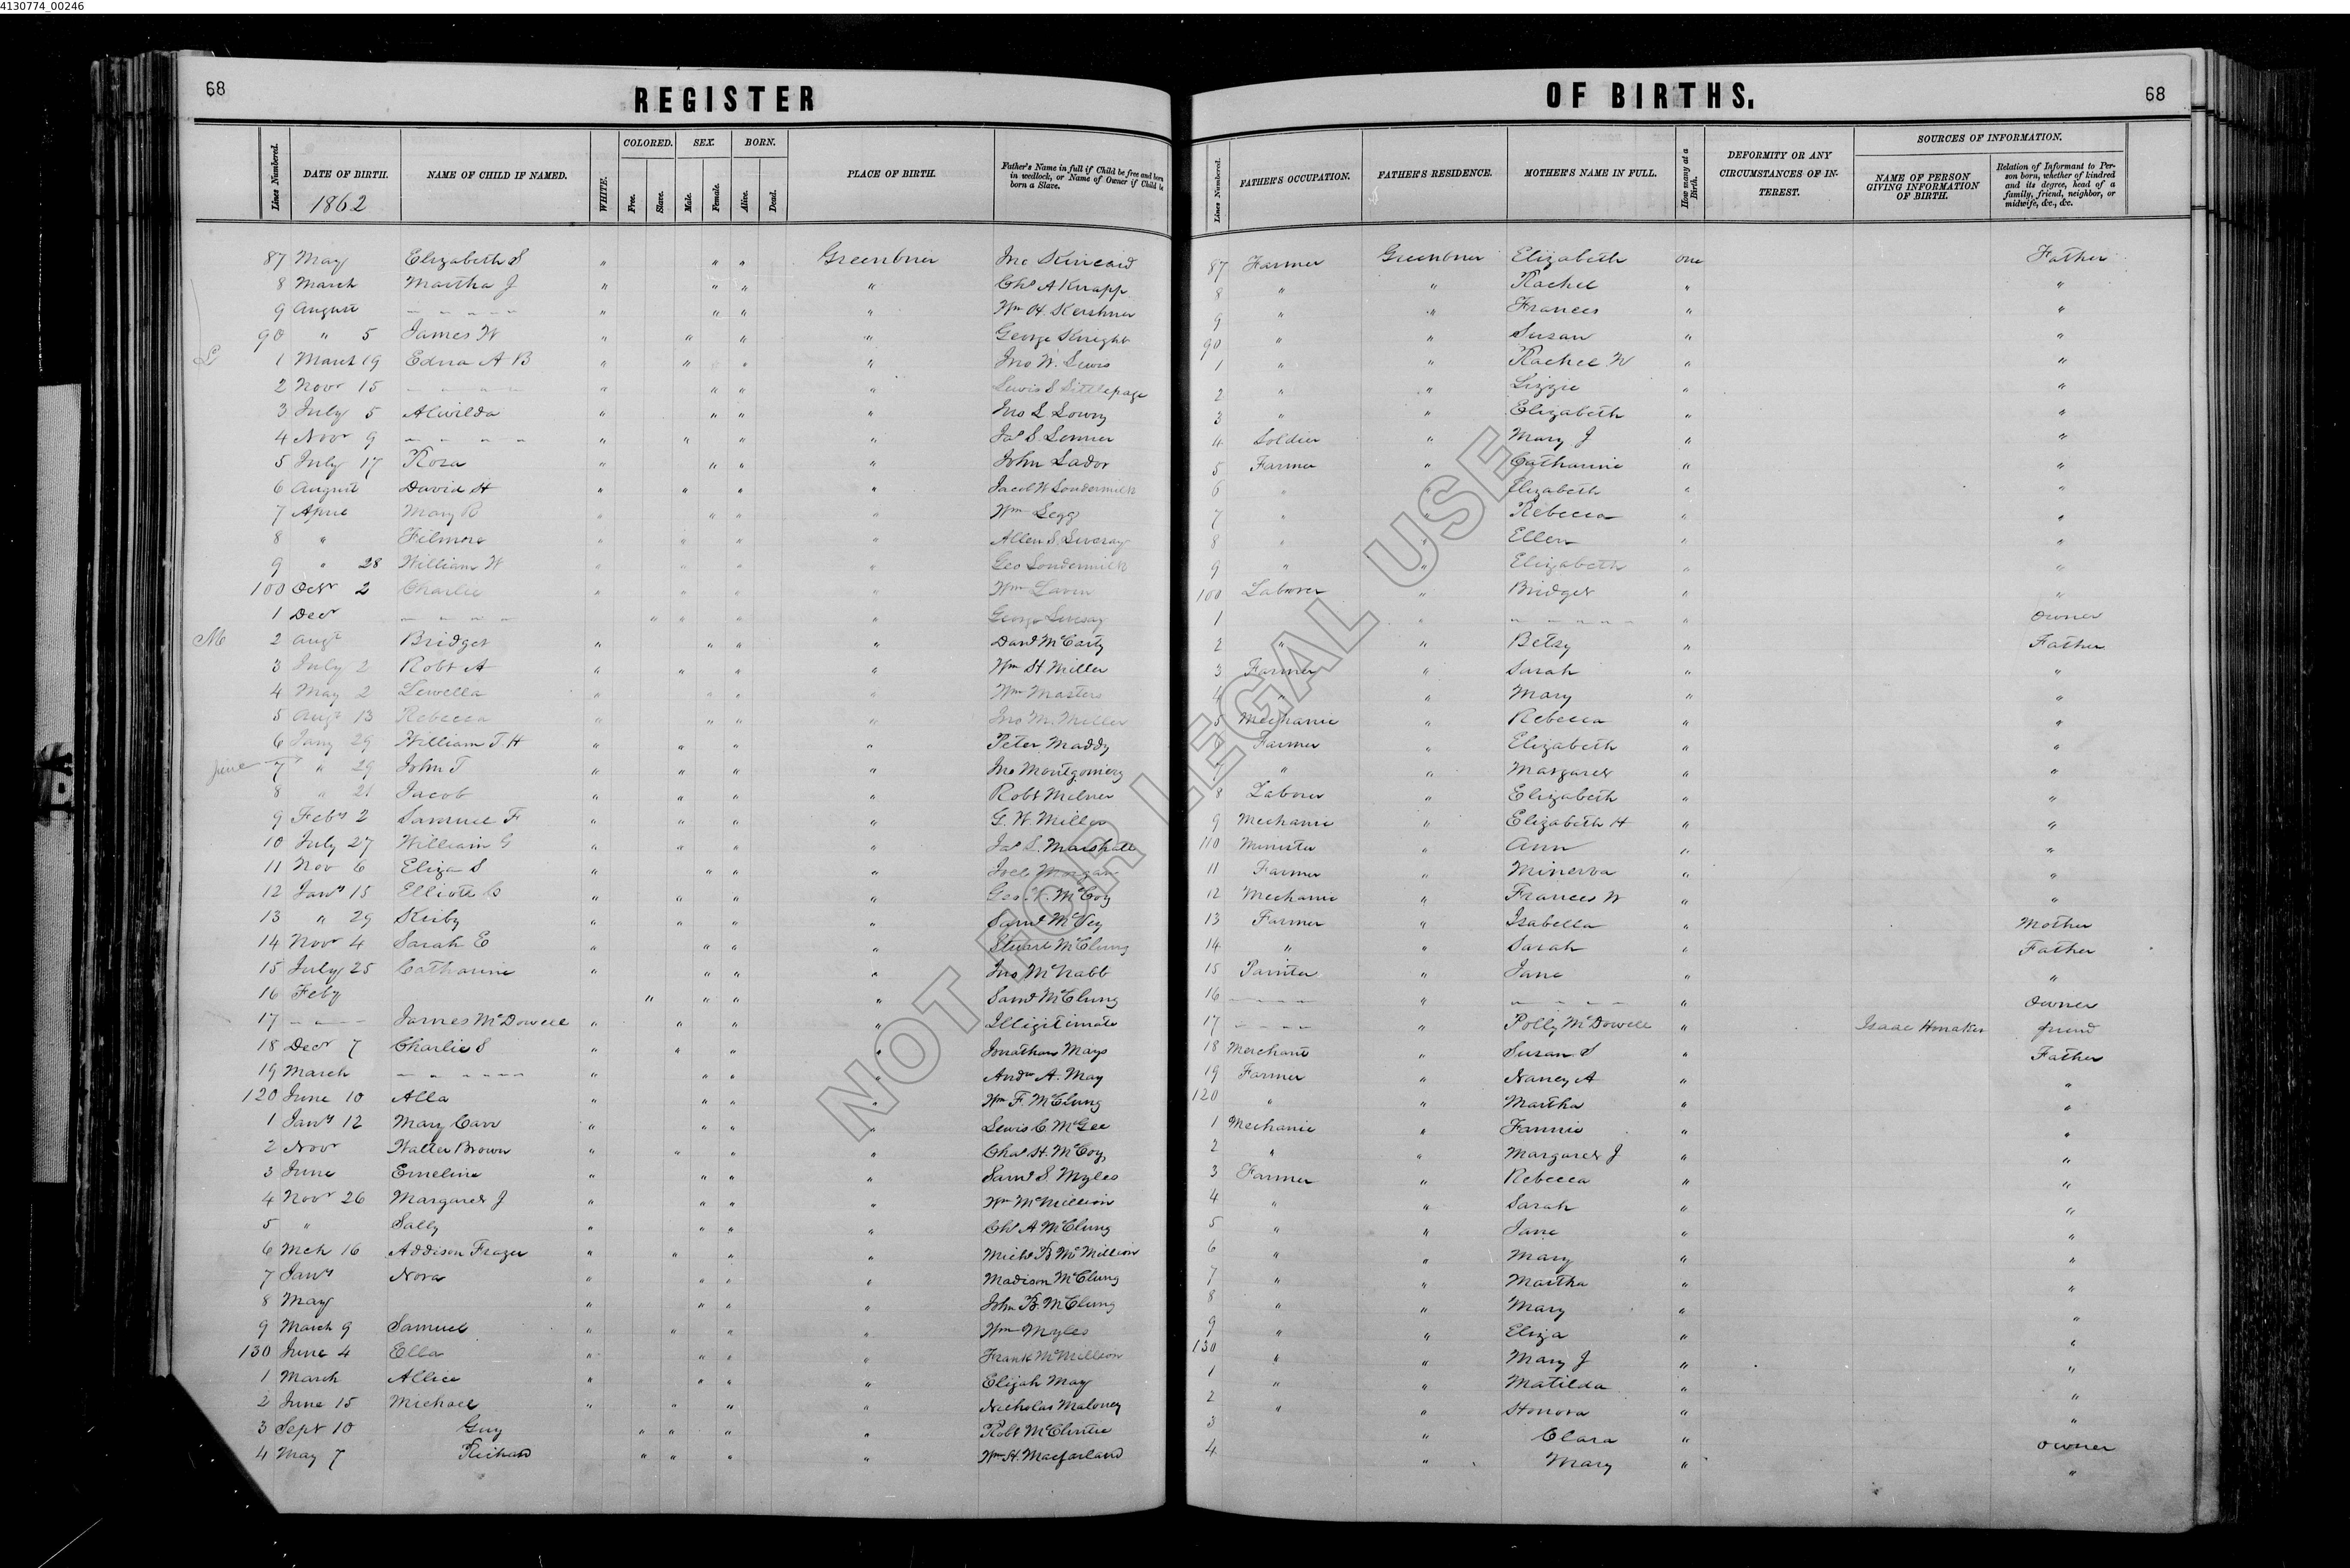 4130774_00246
68
REGISTER
OF BIRTHS.
68
Lines Numbered. DATE OF BIRTH. 1862 NAME OF CHILD IF NAMED. WHITE. COLORED. Free. Slave. SEX. Male. Female. BORN. Alive. Dead. PLACE OF BIRTH. Father's Name in full if Child be free and born in wedlock, or Name of Owner if Child be born a Slave.
Lines Numbered. FATHER'S OCCUPATION. FATHER'S RESIDENCE. MOTHER'S NAME IN FULL. How many at a Birth. DEFORMITY OR ANY CIRCUMSTANCES OF INTEREST. SOURCES OF INFORMATION. NAME OF PERSON GIVING INFORMATION OF BIRTH. Relation of Informant to Person born, whether of kindred and its degree, head of a family, friend, neighbor, or midwife, &c., &c.
87 May Elizabeth S " " " Greenbrier Jno Kincaid 87 Farmer Greenbrier Elizabeth one Father
8 March Martha J " " " " Chs A Knapp 8 " " Rachel " "
9 August – – – – – " " " " Wm H. Kershner 9 " " Frances " "
90 " 5 James W " " " " George Knight 90 " " Susan " "
L 1 March 19 Edna A B " " " " Jno W. Lewis 1 " " Rachel W " "
2 Novr 15 – – – – – " " " " Lewis S Littlepage 2 " " Lizzie " "
3 July 5 Alwilda " " " " Jno L Lowry 3 " " Elizabeth " "
4 Novr 9 – – – – – " " " " Jas S. 4 Soldier " Mary J " "
5 July 17 Rosa " " " " John 5 Farmer " Catharine " "
6 August David H " " " " Jacob W Loudermilk 6 " " Elizabeth " "
7 April Mary B " " " " Wm Legg 7 " " Rebecca " "
8 " Filmore " " " " Allen S. Livesay 8 " " Ellen " "
9 " 28 William W " " " " Geo Loudermilk 9 " " Elizabeth " "
100 Octr 2 Charlie " " " " Wm Lavin 100 Laborer " Bridget " "
1 Decr – – – – – " " " " George Livesay 1 " – – – – – " owner
M 2 Augt Bridget " " " " Danl McCarty 2 " " Betsy " Father
3 July 2 Robt A " " " " Wm H Miller 3 Farmer " Sarah " "
4 May 2 Lewella " " " " Wm Masters 4 " " Mary " "
5 Augt 13 Rebecca " " " " Jno M. Miller 5 Mechanic " Rebecca " "
6 Jany 29 William T. H " " " " Peter Maddy 6 Farmer " Elizabeth " "
June 7 " 29 John T " " " " Jno Montgomery 7 " " Margaret " "
8 " 21 Jacob " " " " Robt Milner 8 Laborer " Elizabeth " "
9 Feby 2 Samuel F " " " " G. W. Miller 9 Mechanic " Elizabeth H " "
10 July 27 William G " " " " Jas L. Marshall 110 Minister " Ann " "
11 Nov 6 Eliza S " " " " Joel Morgan 11 Farmer " Minerva " "
12 Jany 15 Elliott C " " " " Geo. W. McCoy 12 Mechanic " Frances W " "
13 " 29 Kirby " " " " Saml McVey 13 Farmer " Isabella " Mother
14 Novr 4 Sarah E " " " " Stuart McClung 14 " " Sarah " Father
15 July 25 Catharine " " " " Jno McNabb 15 Painter " Jane " "
16 Feby " " " " Saml McClung 16 – – – – " – – – – " owner
17 – – – James McDowell " " " " Illigitimate 17 – – – – " Polly McDowell " Isaac Honaker friend
18 Decr 7 Charlie S " " " " Jonathan Mays 18 Merchant " Susan S " Father
19 March – – – – – – " " " " Andw A. May 19 Farmer " Nancy A " "
120 June 10 Alla " " " " Wm F. McClung 120 " " Martha " "
1 Jany 12 Mary Carr " " " " Lewis C. McGee 1 Mechanic " Fannie " "
2 Novr Walter Brown " " " " Chas H. McCoy 2 " " Margaret J " "
3 June Emeline " " " " Saml S. Myles 3 Farmer " Rebecca " "
4 Novr 26 Margaret J " " " " Wm McMillion 4 " " Sarah " "
5 " Sally " " " " Chs A McClung 5 " " Jane " "
6 Mch 16 Addison Frazer " " " " Michl B McMillion 6 " " Mary " "
7 Jany Nora " " " " Madison McClung 7 " " Martha " "
8 May " " " " John B. McClung 8 " " Mary " "
9 March 9 Samuel " " " " Wm Myles 9 " " Eliza " "
130 June 4 Ella " " " " Frank McMillion 130 " " Mary J " "
1 March Allice " " " " Elijah May 1 " " Matilda " "
2 June 15 Michael " " " " Nicholas Maloney 2 " " Honora " "
3 Sept 10 Guy " " " " Robt McClintic 3 " Clara " owner
4 May 7 Richard " " " " Wm H. Macfarland 4 " Mary " "
NOT FOR LEGAL USE